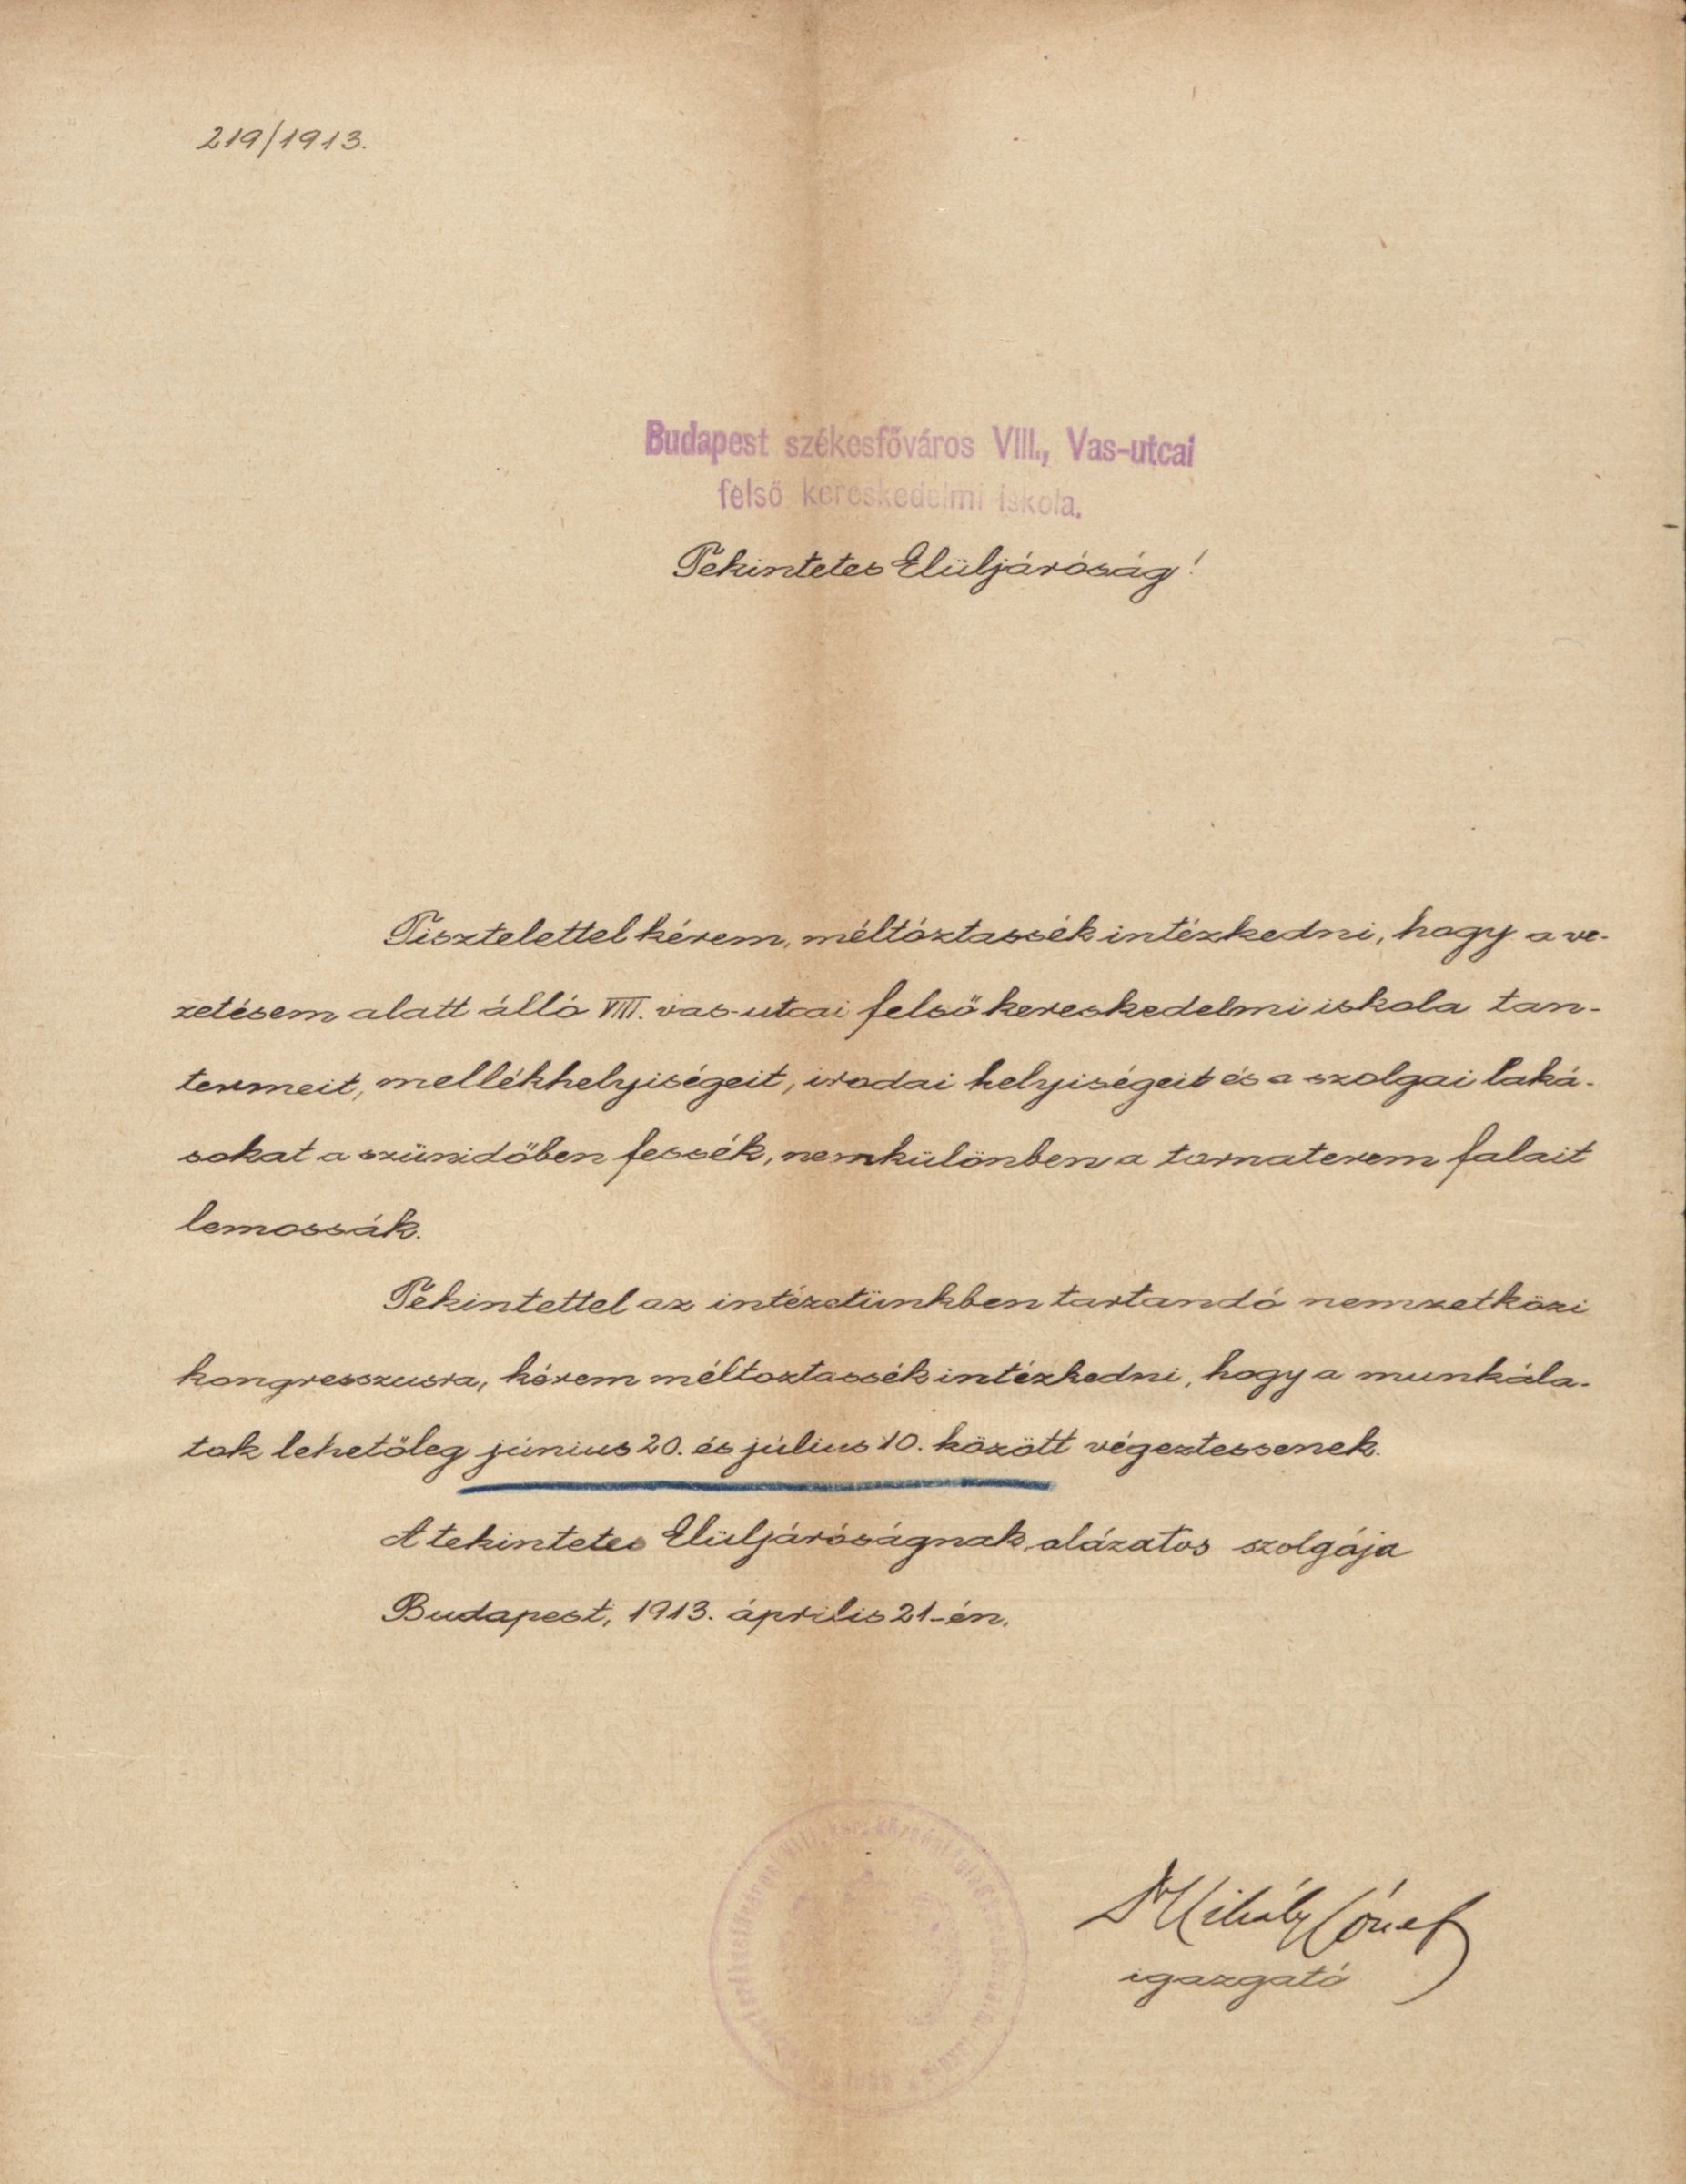 219/1913.
Budapest székesfőváros VIII., Vas-utcai
felső kereskedelmi iskola.
Tekintetes Elüljáróság!
Tisztelettel kérem, méltóztassék intézkedni, hogy a ve-
zetésem alatt álló VIII. vas-utcai felső kereskedelmi iskola tan-
termeit, mellékhelyiségeit, irodai helyiségeit és a szolgai laká-
sokat a szünidőben fessék, nemkülönben a tornaterem falait
lemossák.
Tekintettel az intézetünkben tartandó nemzetközi
kongresszusra, kérem méltoztassék intézkedni, hogy a munkála-
tok lehetőleg június 20. és július 10. között végeztessenek.
A tekintetes Elüljáróságnak alázatos szolgája
Budapest, 1913. április 21-én.
Dr Mihály József
igazgató